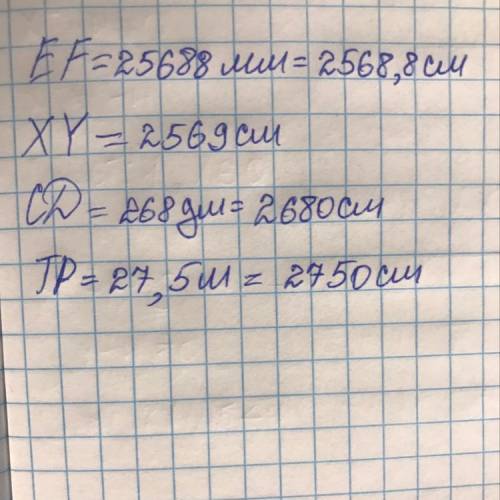 EF = 25688 мм = 2568,8 см
XY = 2569 см
CD = 268 дм = 2680 см
TP = 27,5 м = 2750 см